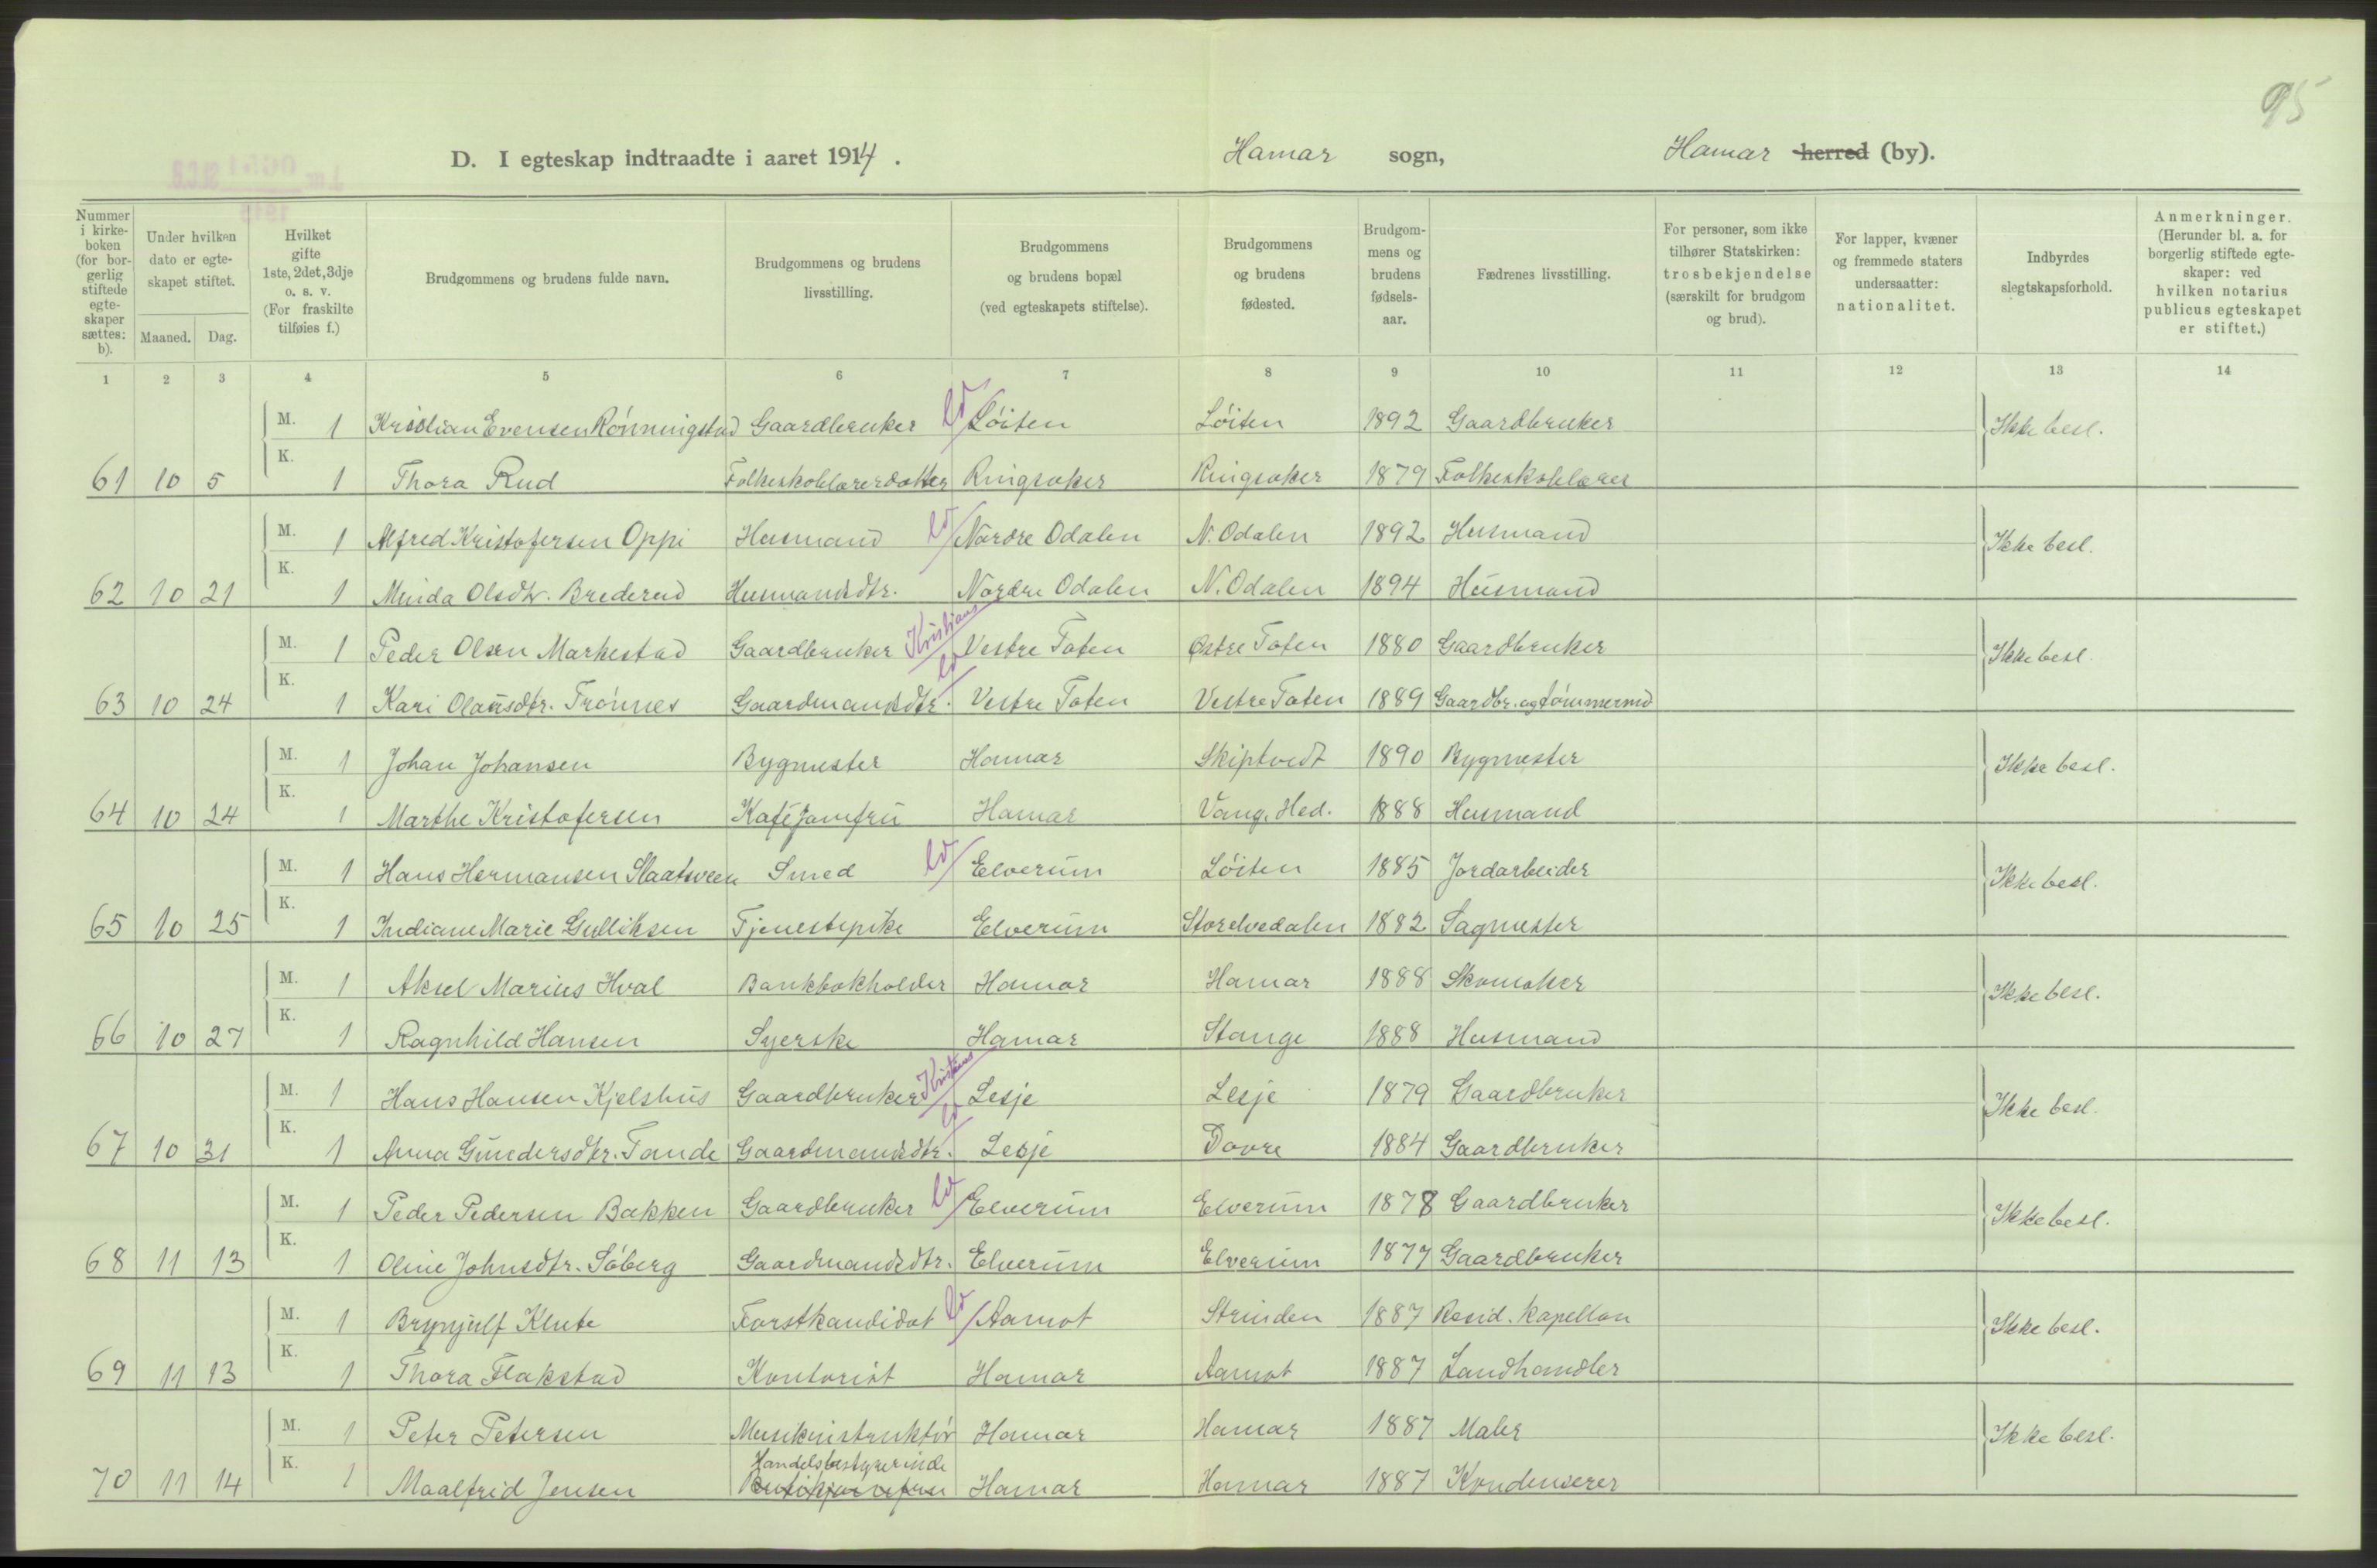 95
D. I egteskap indtraadte i aaret 1914. Hamar sogn, Hamar herred (by).
Nummer i kirkeboken (for borgerlig stiftede egteskaper sættes: b). Under hvilken dato er egteskapet stiftet. Maaned. Dag. Hvilket gifte 1ste, 2det, 3dje o. s. v. (For fraskilte tilføies f.) Brudgommens og brudens fulde navn. Brudgommens og brudens livsstilling. Brudgommens og brudens bopæl (ved egteskapets stiftelse). Brudgommens og brudens fødested. Brudgommens og brudens fødselsaar. Fædrenes livsstilling. For personer, som ikke tilhører Statskirken: trosbekjendelse (særskilt for brudgom og brud). For lapper, kvæner og fremmede staters undersaatter: nationalitet. Indbyrdes slegtskapsforhold. Anmerkninger. (Herunder bl. a. for borgerlig stiftede egteskaper: ved hvilken notarius publicus egteskapet er stiftet.)
1 2 3 4 5 6 7 8 9 10 11 12 13 14
M. 1 Kristian Evensen Rönningstad Gaardbruker Löiten Löiten 1892 Gaardbruker Ikke besl.
61 10 5 K. 1 Thora Rud Folkeskolelærerdatter Ringsaker Ringsaker 1879 Folkeskolelærer
M. 1 Alfred Kristofersen Oppi Husmand Nordre Odalen N. Odalen 1892 Husmand Ikke besl.
62 10 21 K. 1 Minda Olsdtr. Brederud Husmandsdtr. Nordre Odalen N. Odalen 1894 Husmand
M. 1 Peder Olsen Markestad Gaardbruker Kristians Vestre Toten Østre Toten 1880 Gaardbruker Ikke besl.
63 10 24 K. 1 Kari Olausdtr. Trönnes Gaardmandsdtr. Vestre Toten Vestre Toten 1889 Gaardbr. og tömmermd
M. 1 Johan Johansen Bygmester Hamar Skiptvedt 1890 Bygmester Ikke besl.
64 10 24 K. 1 Marthe Kristofersen Kaféjomfru Hamar Vang, Hed. 1888 Husmand
M. 1 Hans Hermansen Slaatsveen Smed Elverum Löiten 1885 Jordarbeider Ikke besl.
65 10 25 K. 1 Indiane Marie Gulliksen Tjenestepike Elverum Storelvedalen 1882 Sagmester
M. 1 Aksel Marius Hval Bankbokholder Hamar Hamar 1888 Skomaker Ikke besl.
66 10 27 K. 1 Ragnhild Hansen Syerske Hamar Stange 1888 Husmand
M. 1 Hans Hansen Kjelshus Gaardbruker Kristians Lesje Lesje 1879 Gaardbruker Ikke besl.
67 10 31 K. 1 Anna Gundersdtr. Tande Gaardmandsdtr. Lesje Dovre 1884 Gaardbruker
M. 1 Peder Pedersen Bakken Gaardbruker Elverum Elverum 1878 Gaardbruker Ikke besl.
68 11 13 K. 1 Oline Johnsdtr. Söberg Gaardmandsdtr. Elverum Elverum 1877 Gaardbruker
M. 1 Brynjulf Klute Forstkandidat Aamot Strinden 1887 Resid. kapellan Ikke besl.
69 11 13 K. 1 Thora Flakstad Kontorist Hamar Aamot 1887 Landhandler
M. 1 Peter Petersen Musikinstruktör Hamar Hamar 1887 Maler Ikke besl.
Handelsbestyrerinde
70 11 14 K. 1 Maalfrid Jensen Butikjomfru Hamar Hamar 1887 Kondenserer